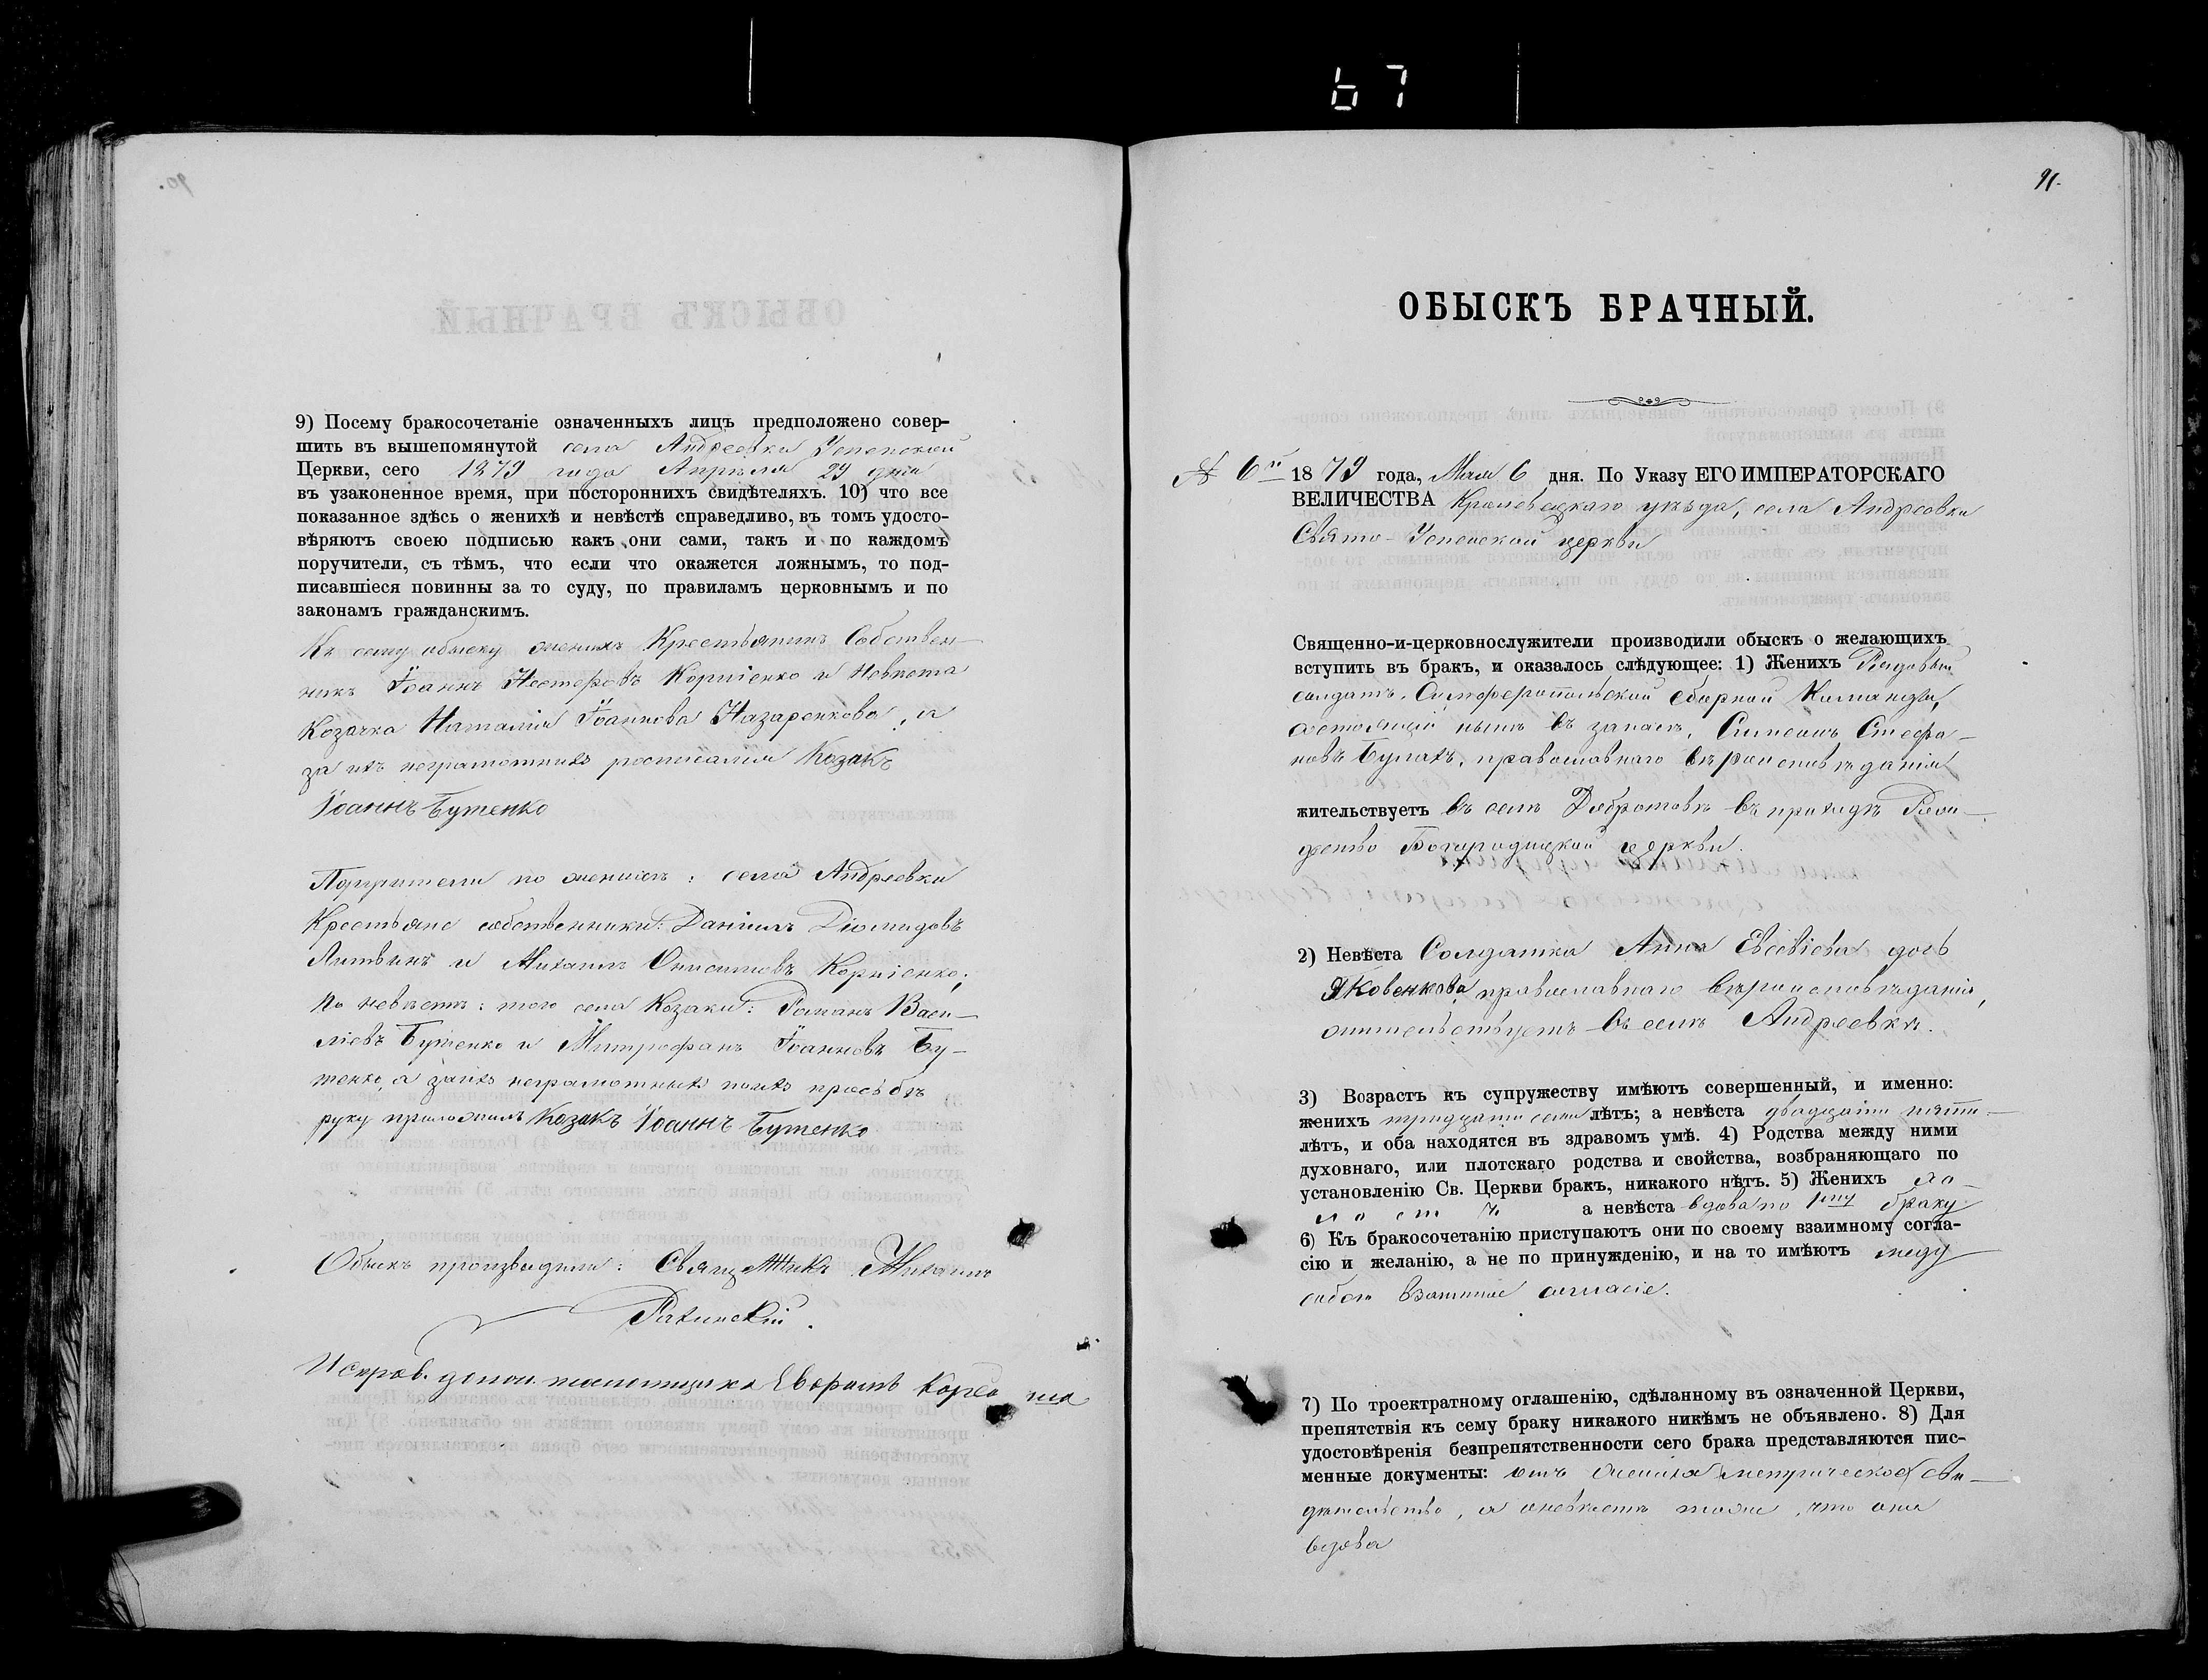 67
9) Посему бракосочетаніе означенныхъ лицъ предположено совер-
шить въ вышепомянутой села Андреевки Успенской
Церкви, сего 1879 года Апрѣля 29 дня
въ узаконенное время, при постороннихъ свидѣтеляхъ. 10) что все
показанное здѣсь о женихѣ и невѣстѣ справедливо, въ томъ удосто-
вѣряютъ своею подписью какъ они сами, такъ и по каждомъ
поручители, съ тѣмъ, что если что окажется ложнымъ, то под-
писавшіеся повинны за то суду, по правиламъ церковнымъ и по
законамъ гражданскимъ.
Къ сему обыску женихъ Крестьянинъ Собствен-
никъ Іоаннъ Нестеровъ Корніенко и Невѣста
Козачка Наталія Іоаннова Назаренкова, а
за ихъ неграмотныхъ росписался Козакъ
Іоаннъ Бутенко
Поручители по женихѣ: села Андреевки
Крестьяне собственники: Даніилъ Діомидовъ
Литвинъ и Михаилъ Корніенко;
По невѣстѣ: того села Козаки: Романъ Васи-
ліевъ Бутенко и Митрофанъ Іоанновъ Бу-
тенко, а за ихъ неграмотныхъ по ихъ просьбѣ
руку приложилъ Козакъ Іоаннъ Бутенко
Обыскъ производили: Священникъ Михаилъ
Рахинскій.
Исправ. долж. псаломщика
91.
ОБЫСКЪ БРАЧНЫЙ.
№ 6й 1879 года, Мая 6 дня. По Указу ЕГО ИМПЕРАТОРСКАГО
ВЕЛИЧЕСТВА Кролевецкаго уѣзда, села Андреевки
Свято-Успенской церкви
Священно-и-церковнослужители производили обыскъ о желающихъ
вступить въ бракъ, и оказалось слѣдующее: 1) Женихъ Рядовый
солдатъ, Симферопольской сборной Команды,
состоящій нынѣ въ запасѣ, Симеонъ Стефа-
новъ Булахъ, православнаго вѣроисповѣданія
жительствуетъ въ селѣ Добротовѣ въ приходѣ Рож-
дество Богородицкой церкви.
2) Невѣста Солдатка Анна Евсевіева дочь
Яковенкова, православнаго вѣроисповѣданія,
жительствуетъ въ селѣ Андреевкѣ.
3) Возрастъ къ супружеству имѣютъ совершенный, и именно:
женихъ тридцати семи лѣтъ; а невѣста двадцати пяти-
лѣтъ, и оба находятся въ здравомъ умѣ. 4) Родства между ними
духовнаго, или плотскаго родства и свойства, возбраняющаго по
установленію Св. Церкви бракъ, никакого нѣтъ. 5) Женихъ хо-
лостъ а невѣста вдова по 1му браку
6) Къ бракосочетанію приступаютъ они по своему взаимному согла-
сію и желанію, а не по принужденію, и на то имѣютъ межу
собою взаимное согласіе.
7) По троектратному оглашенію, сдѣланному въ означенной Церкви,
препятствія къ сему браку никакого никѣмъ не объявлено. 8) Для
удостовѣренія безпрепятственности сего брака представляются пис-
менные документы: отъ жениха метрическое сви-
дѣтельство, а о невѣстѣ тоже, что она
вдова